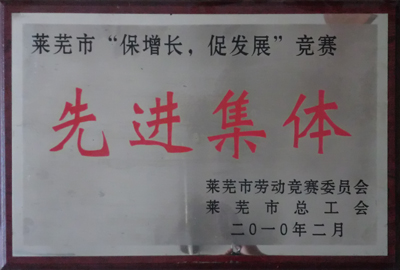 莱芜市“保增长，促发展”竞赛
先进集体
莱芜市劳动竞赛委员会
莱芜市总工会
二〇一〇年二月